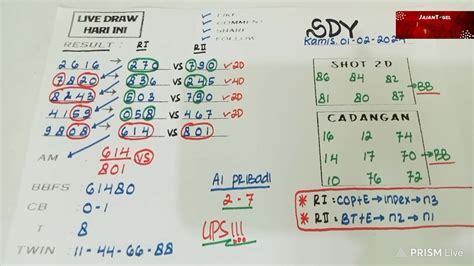 LIVE DRAW
HARI INI
LIKE
COMMENT
SHARE
FOLLOW
SDY
Kamis. 01-02-2024
JAJANT-GEL
RESULT : RI RII
2616 270 VS 790 2D
7820 836 VS 245 4D
8243 503 VS 790 2D
4159 058 VS 467 2D
9808 614 VS 801
AM 614 VS
801
BBFS : 61480
CB : 0-1
T : 8
TWIN : 11-44-66-88
AI PRIBADI
2-7
UPS!!!
SHOT 2D
86 84 82
81 80 87
BB
CADANGAN
16 12 74
14 17 70
10 76 72
BB
* RI : COP+E→index→n3
* RII : BT+E→n2→n1
PRISM Live